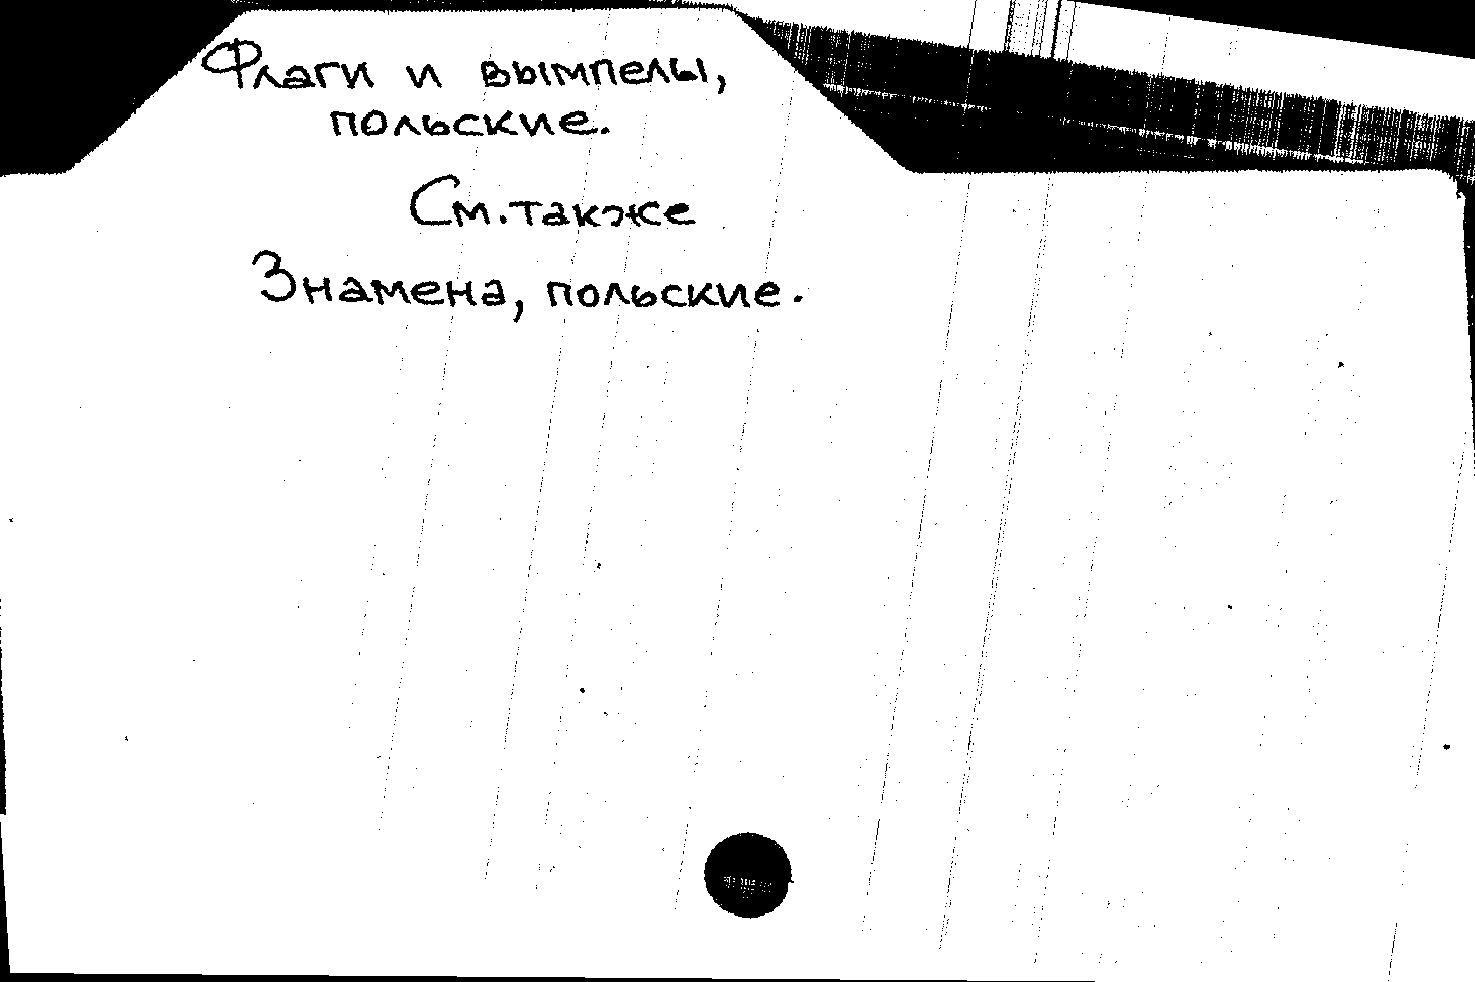 Флаги и вымпелы,
польские.
См. также
Знамена, польские.